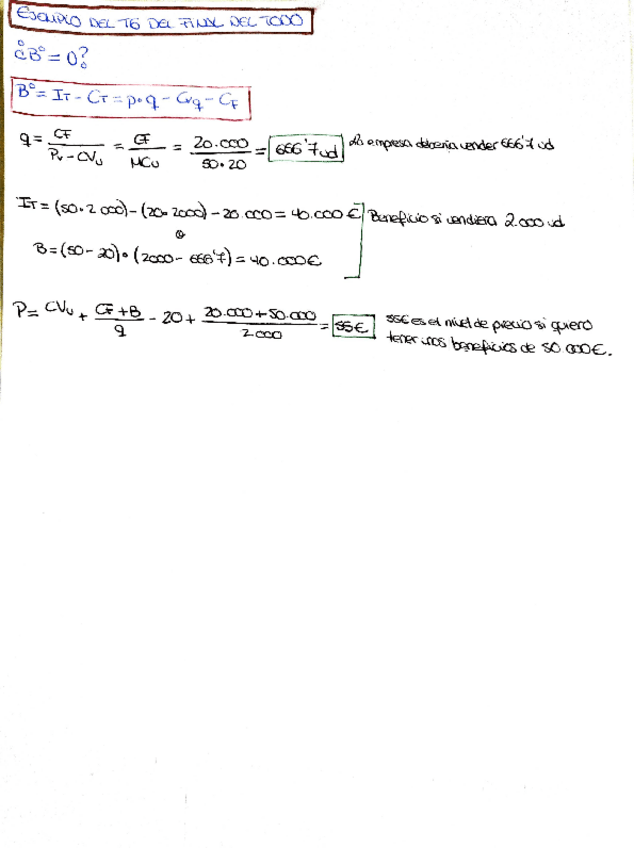 EJEMPLO DEL T6 DEL FINAL DEL TODO
¿B° = 0?
B° = IT - CT = p·q - CVq - CF
q = CF / Pv - CVu = CF / MCu = 20.000 / 50·20 = 666'7 ud La empresa debería vender 666'7 ud
IT = (50·2000) - (20·2000) - 20.000 = 40.000€ Beneficio si vendiera 2.000 ud
o
B = (50 - 20)·(2000 - 666'7) = 40.000€
P = CVu + CF + B / q - 20 + 20.000 + 50.000 / 2.000 = 55€ 55€ es el nivel de precio si quiero
tener unos beneficios de 50.000€.